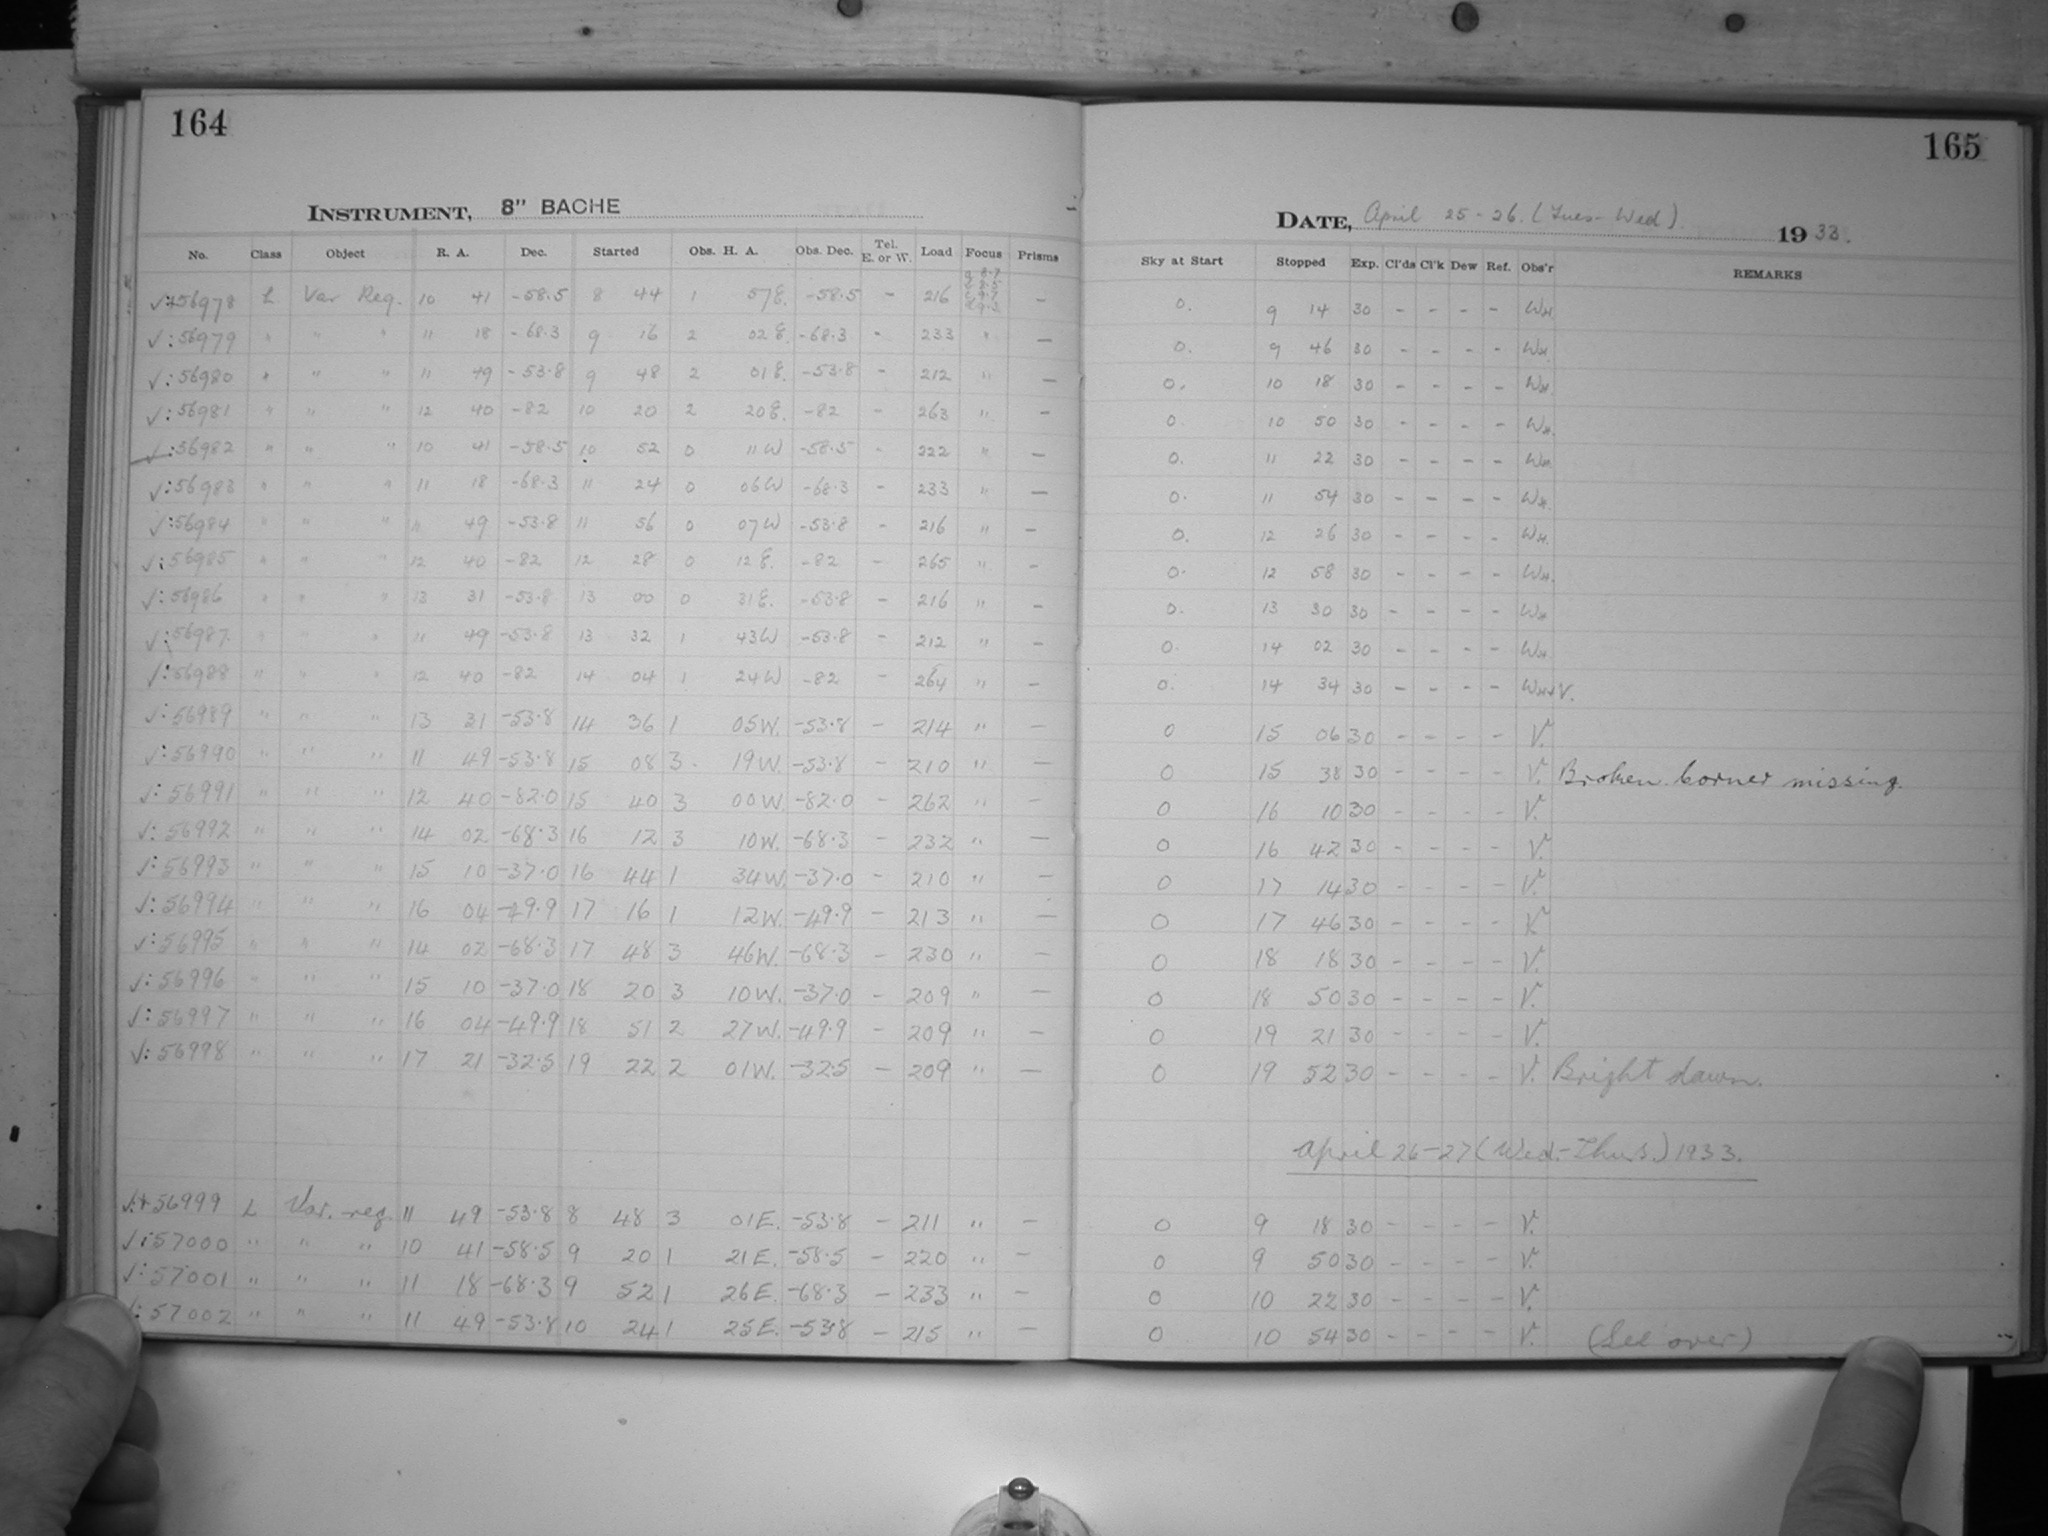 164
INSTRUMENT, 8" BACHE
No. Class Object R. A. Dec. Started Obs. H. A. Obs. Dec. Tel. E. or W. Load Focus Prisms
56978 L Var Reg. 10 41 -58.5 8 44 1 57E. -58.5 - 216 -
56979 " " " 11 18 -68.3 9 16 2 02E. -68.3 - 233 " -
56980 " " " 11 49 -53.8 9 48 2 01E. -53.8 - 212 " -
56981 " " " 12 40 -82 10 20 2 20E. -82 - 263 " -
56982 " " " 10 41 -58.5 10 52 0 11W -58.5 - 222 " -
56983 " " " 11 18 -68.3 11 24 0 06W -68.3 - 233 " -
56984 " " " 11 49 -53.8 11 56 0 07W -53.8 - 216 " -
56985 " " " 12 40 -82 12 28 0 12E. -82 - 265 " -
56986 " " " 13 31 -53.8 13 00 0 31E. -53.8 - 216 " -
56987 " " " 11 49 -53.8 13 32 1 43W -53.8 - 212 " -
56988 " " " 12 40 -82 14 04 1 24W -82 - 264 " -
56989 " " " 13 31 -53.8 14 36 1 05W. -53.8 - 214 " -
56990 " " " 11 49 -53.8 15 08 3 19W. -53.8 - 210 " -
56991 " " " 12 40 -82.0 15 40 3 00W. -82.0 - 262 " -
56992 " " " 14 02 -68.3 16 12 3 10W. -68.3 - 232 " -
56993 " " " 15 10 -37.0 16 44 1 34W. -37.0 - 210 " -
56994 " " " 16 04 -49.9 17 16 1 12W. -49.9 - 213 " -
56995 " " " 14 02 -68.3 17 48 3 46W. -68.3 - 230 " -
56996 " " " 15 10 -37.0 18 20 3 10W. -37.0 - 209 " -
56997 " " " 16 04 -49.9 18 51 2 27W. -49.9 - 209 " -
56998 " " " 17 21 -32.5 19 22 2 01W. -32.5 - 209 " -
56999 L Var. reg 11 49 -53.8 8 48 3 01E. -53.8 - 211 " -
57000 " " " 10 41 -58.5 9 20 1 21E. -58.5 - 220 " -
57001 " " " 11 18 -68.3 9 52 1 26E. -68.3 - 233 " -
57002 " " " 11 49 -53.8 10 24 1 25E. -53.8 - 215 " -
165
DATE, April 25-26. (Tues-Wed). 1933.
Sky at Start Stopped Exp. Cl'ds Cl'k Dew Ref. Obs'r REMARKS
0. 9 14 30 - - - - WH
0. 9 46 30 - - - - WH.
0. 10 18 30 - - - - WH.
0. 10 50 30 - - - - WH.
0. 11 22 30 - - - - WH.
0. 11 54 30 - - - - WH.
0. 12 26 30 - - - - WH.
0. 12 58 30 - - - - WH.
0. 13 30 30 - - - - WH
0. 14 02 30 - - - - WH
0. 14 34 30 - - - - V.
0 15 06 30 - - - - V.
0 15 38 30 - - - - V. Broken. Corner missing.
0 16 10 30 - - - - V.
0 16 42 30 - - - - V.
0 17 14 30 - - - - V.
0 17 46 30 - - - - V.
0 18 18 30 - - - - V.
0 18 50 30 - - - - V.
0 19 21 30 - - - - V.
0 19 52 30 - - - - V. Bright dawn.
April 26-27 (Wed.-Thurs.) 1933.
0 9 18 30 - - - - V.
0 9 50 30 - - - - V.
0 10 22 30 - - - - V.
0 10 54 30 - - - - V. (See over)